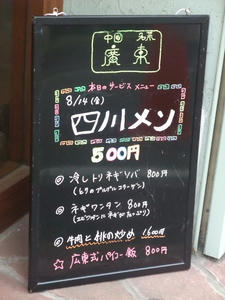 中国 名菜
廣東
本日のサービス メニュー
8/14 (金)
四川メン
500円
◎ 冷しトリネギソバ 800円
(とりのプルプルコラーゲン)
◎ ネギワンタン 800円
◎ 牛肉と 炒め 1600円
☆ 広東式パイコー飯 800円